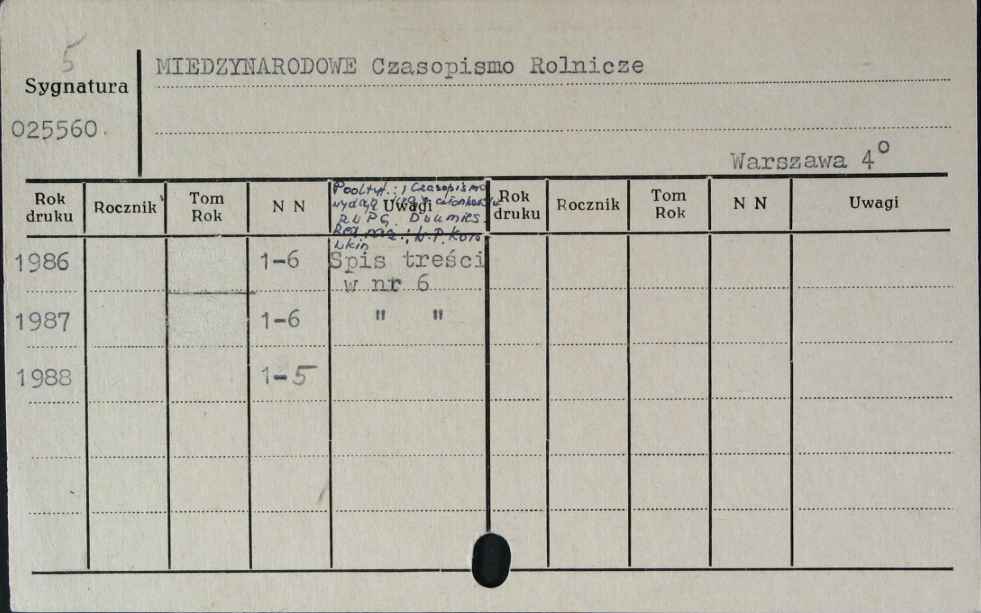 5
Sygnatura
MIEDZYNARODOWE Czasopismo Rolnicze
025560
Warszawa 4°
Rok druku
Rocznik
Tom Rok
N N
Uwagi
Podtyt.: Czasopismo
wydają członkowie
RWPG. Dwumies.
Red.
Rok druku
Rocznik
Tom Rok
N N
Uwagi
1986 1-6 Spis treści
w nr 6
1987 1-6 " "
1988 1-5